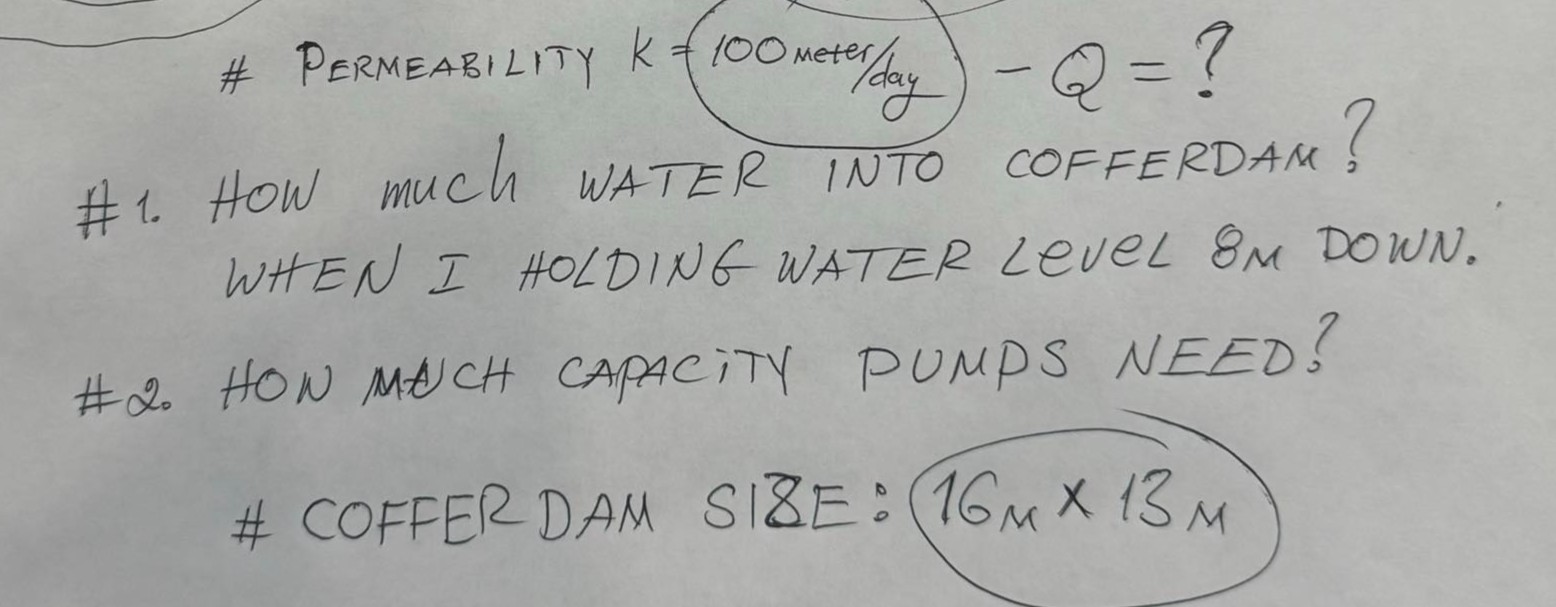 # PERMEABILITY K = 100 meter/day - Q = ?
#1. HOW much WATER INTO COFFERDAM?
WHEN I HOLDING WATER LEVEL 8M DOWN.
#2. HOW MUCH CAPACITY PUMPS NEED?
# COFFERDAM SIZE: 16M X 13M